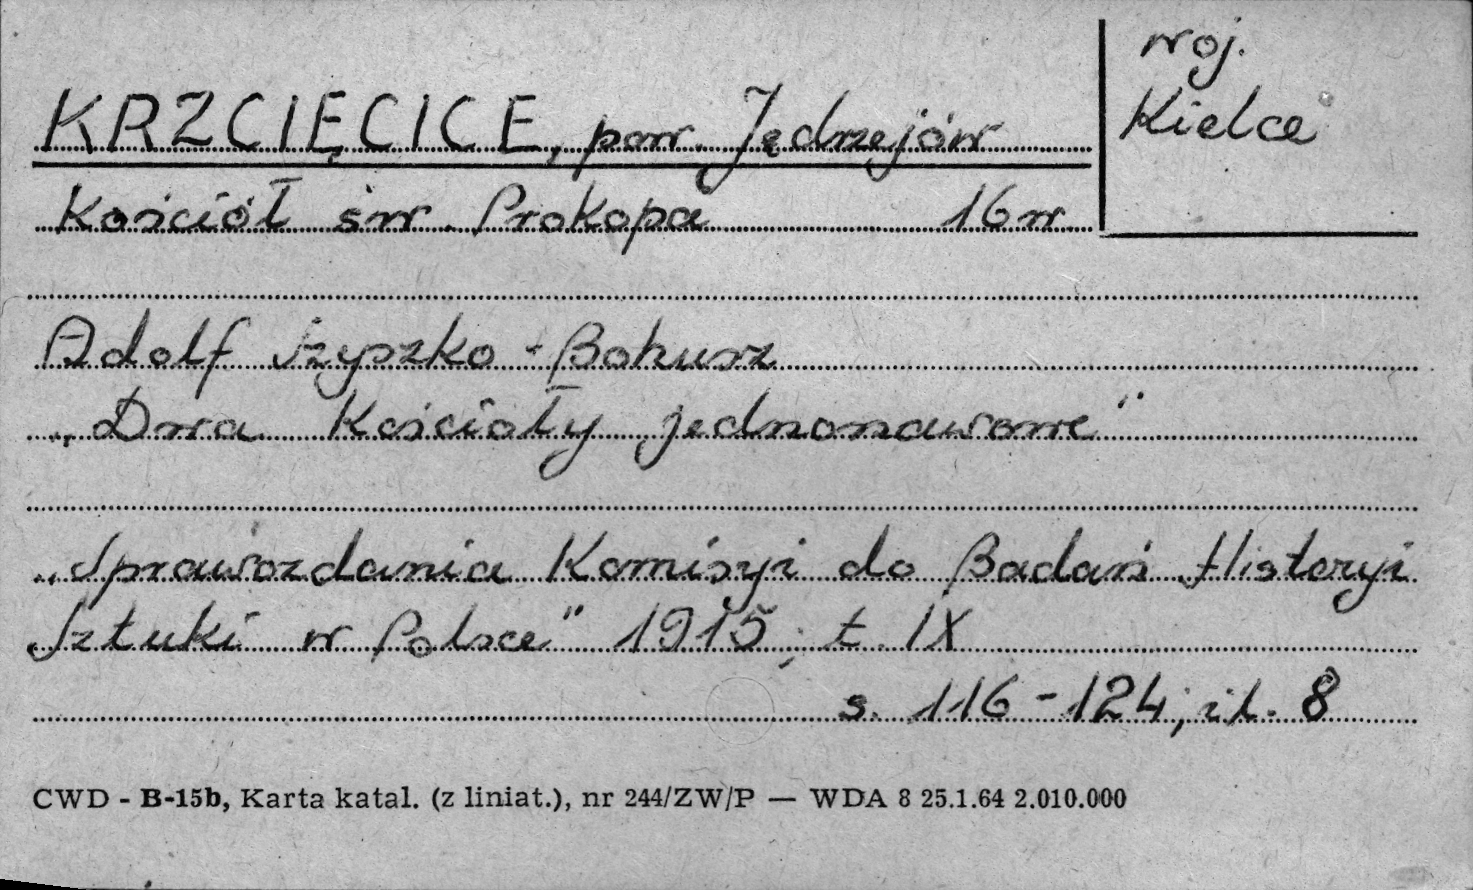 woj.
Kielce
KRZCIĘCICE, pow. Jędrzejów
Kościół św. Prokopa 16 w.
Adolf Szyszko-Bohusz
„Dwa Kościoły jednonawowe"
„Sprawozdania Komisyi do Badań Historyi
Sztuki w Polsce" 1915; t. IX
s. 116-124; il. 8
CWD - B-15b, Karta katal. (z liniat.), nr 244/ZW/P — WDA 8 25.1.64 2.010.000